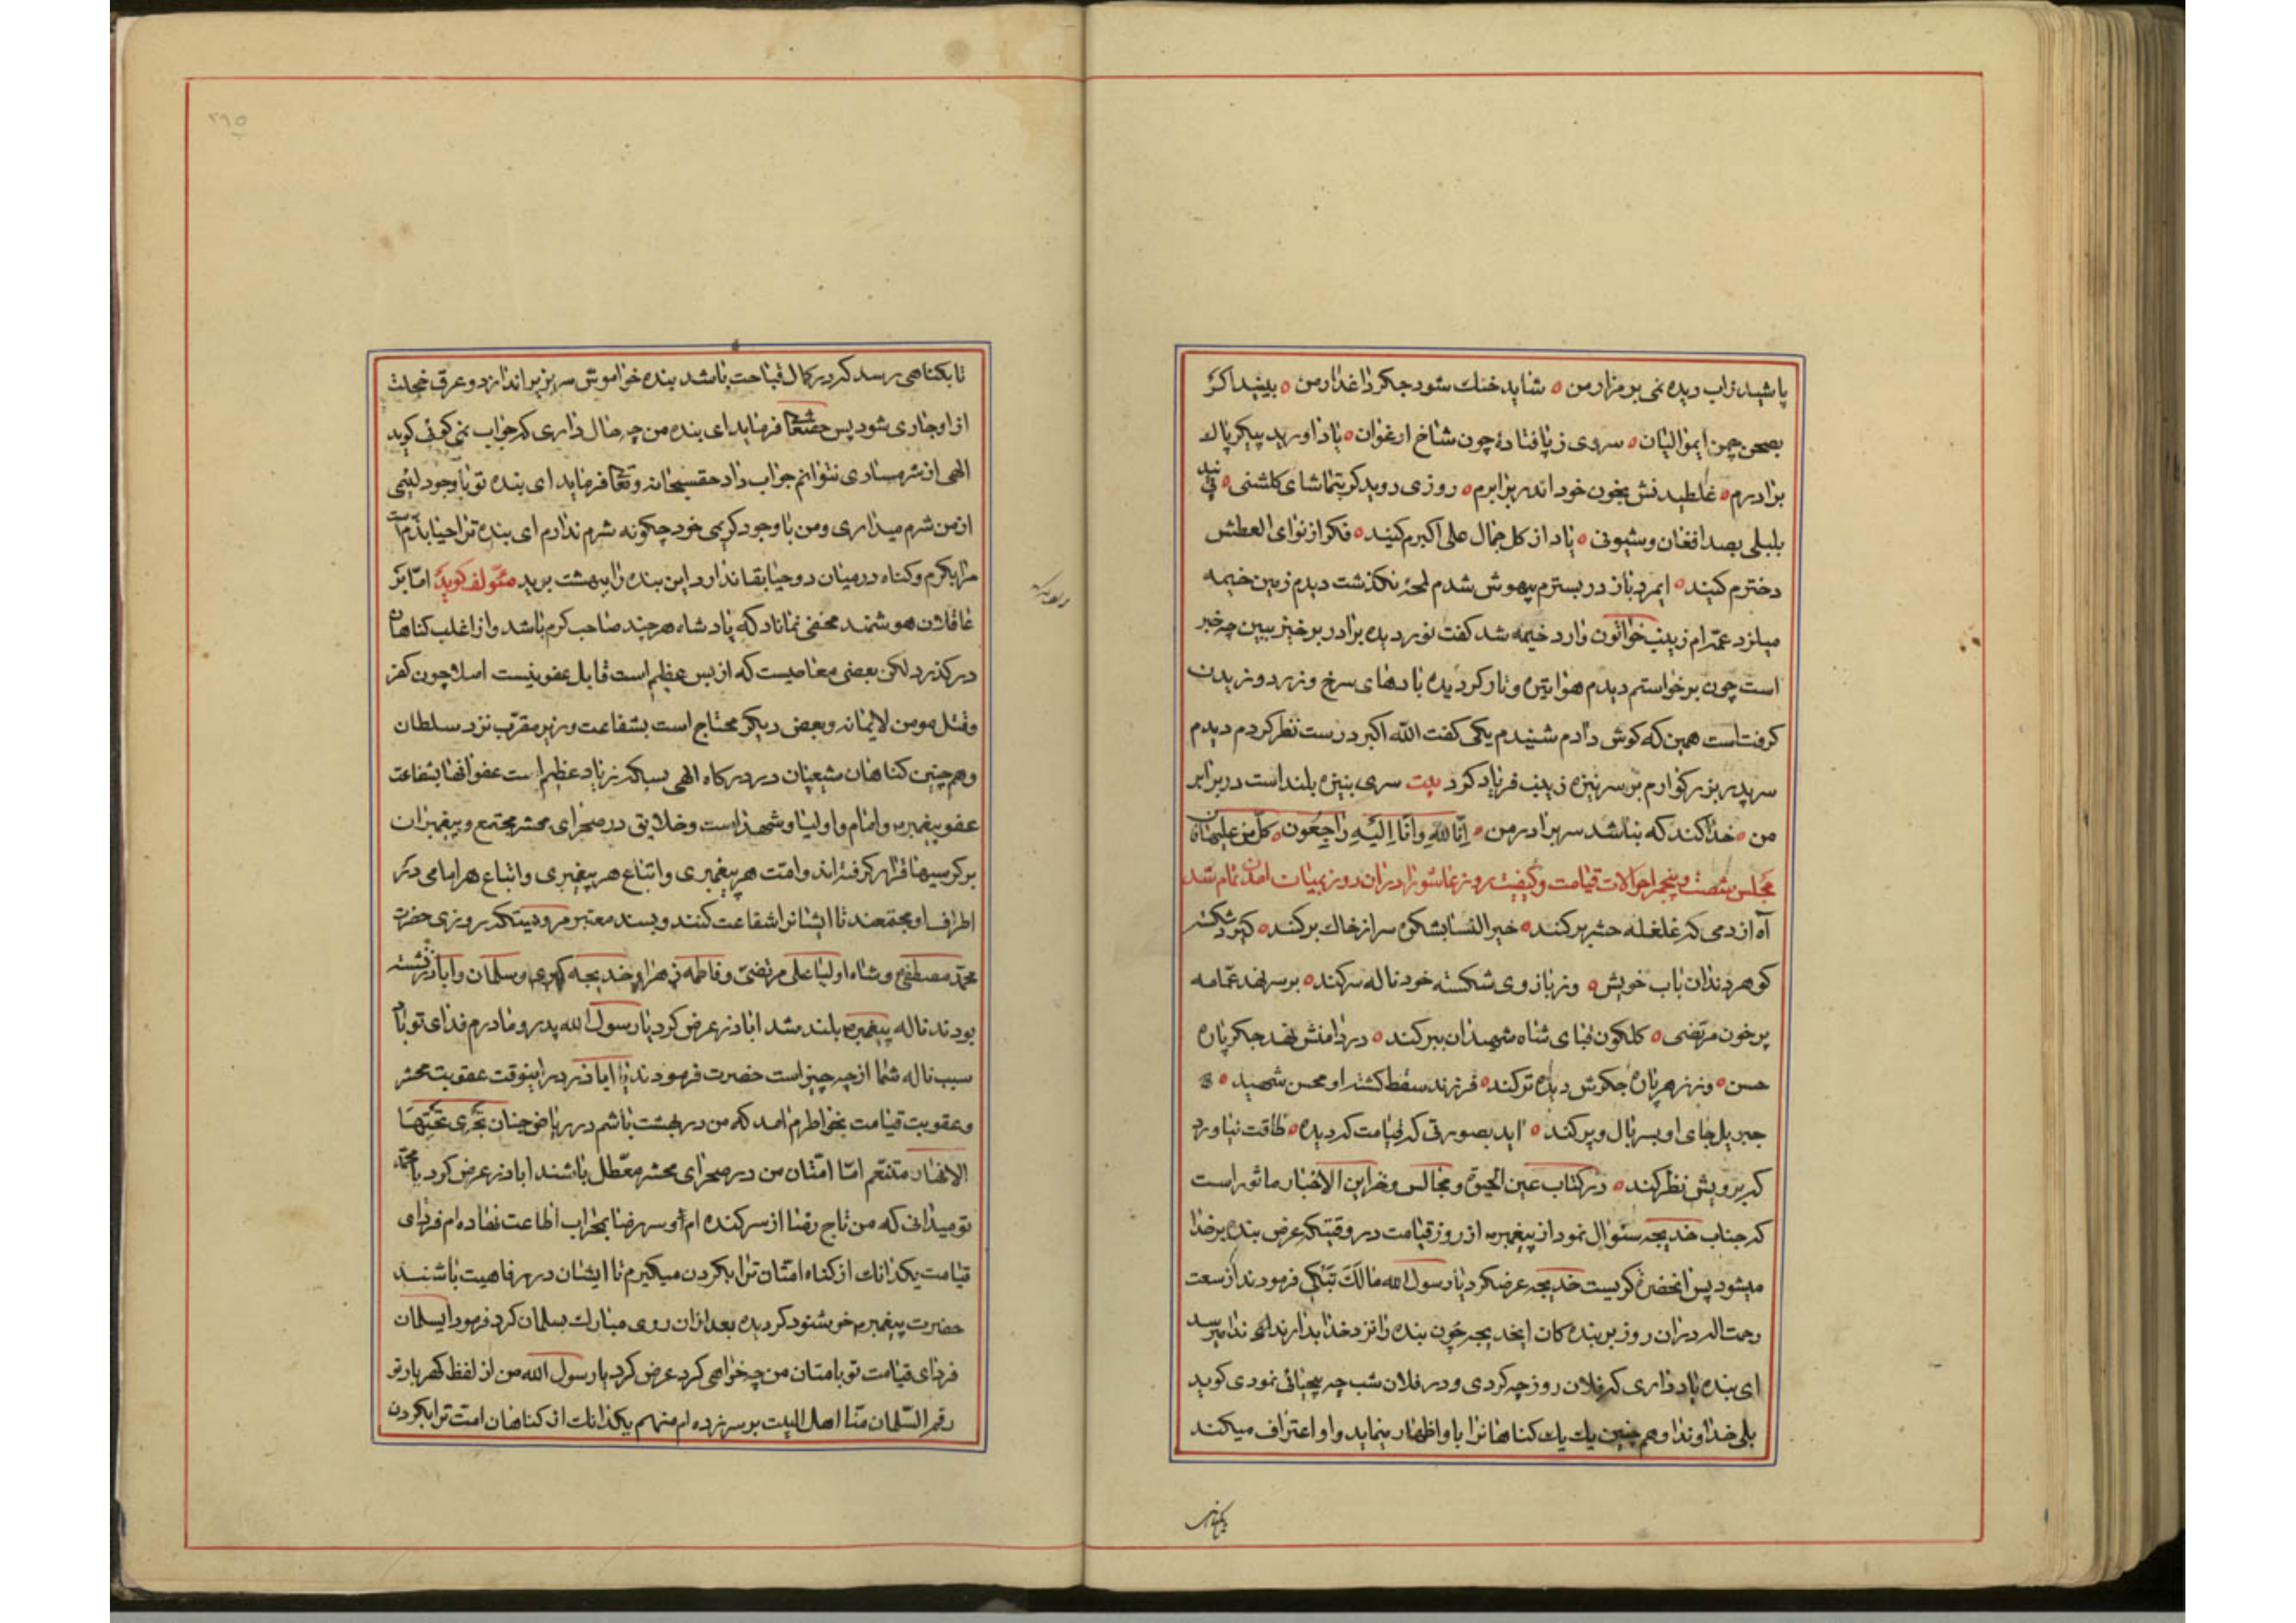 پاشید زاب دیده نمی بر مزار من ه شاید خنك شود جكر داغدار من ه ببینید اكر
بصحن چمن ایموالیان ه سروی ز پا فتادهٔ چون شاخ ارغوان ه یاد اورید پیكر پاك
برادرم ه غلطیدنش بخون خود اندر برابرم ه روزی روید كر بتماشای كلشنی ه
بلبلی بصد افغان و شیونی ه یاد از كل جمال علی اكبرم كنید ه فكر از نوای العطش
دخترم كنید ه ایمرد باز در بسترم بیهوش شدم لمحهٔ نكذشت دیدم زمین خیمه
میلرزد عمّه ام زینب خواتون وارد خیمه شد كفت نور دیده برادر برخیز ببین چه خبر
است چون برخواستم دیدم هوا تیره و تار كردیده بادهای سرخ و زرد وزیدن
كرفتاست همین كه كوش دادم شنیدم یكی كفت الله اكبر درست نظر كردم دیدم
سر پدر بزركوارم بر سر نیزه زینب فریاد كرد بیت سری بنیزه بلند است در برابر
من ه خدا كند كه نباشد سر برادر من ه اِنّا لِلّهِ وَ اِنّا اِلَیْهِ راجِعُون ه كلّ من علیها فان
مجلس شصت و پنجم احوالات قیامت و كیفیت روز عاشورا دران روز
آه از دمی كه غلغله حشر بر كند ه خیر النسا بشكوه سر از خاك بر كند ه
كوهر دندان باب خویش ه وز بازوی شكسته خود ناله سر كند ه بر سر نهد عمّامه
پر خون مرتضی ه كلكون قبای شاه شهیدان ببر كند ه در دامنش نهد جكر پاره
حسن ه وز زهر پاره جكرش دیده تر كند ه فرزند سقط كشته او محسن شهید ه
جبریل جای او بسر بال و پر كند ه اید بصورتی كه قیامت كردیده ه طاقت نیاورد
كه برویش نظر كند ه در كتاب عین الحیوة و مجالس و خزاین الاخبار ماثور است
كه جناب خدیجه سئوال نمود از پیغمبر از روز قیامت در وقتیكه عرض بنده بر خدا
میشود پس انحضرت كریست خدیجه عرضكرد یا رسول الله مالَكَ تَبْكی فرمودند از سعت
رحمت اله دران روز بر بنده كان ایخدیجه چون بنده را نزد خدا بدارند ندا میرسد
ای بنده یاد داری كه فلان روز چه كردی و در فلان شب چه بیحیائی نمودی كوید
بلی خداوندا و هم چنین یك یك كناهانرا باو اظهار نماید و او اعتراف میكند
تا بكناهی رسد كه در كمال قباحت باشد بنده خواموش سر بزیر اندازد و عرق خجلت
از او جاری شود پس حقتعالی فرماید ای بنده من چه حال داری كه جواب نمی كوئی كوید
الهی از شرمساری نتوانم جواب داد حقسبحانه و تعالی فرماید ای بنده تو با وجود لئیمی
از من شرم میداری و من با وجود كریمی خود چكونه شرم ندارم ای بنده ترا حیا
مرا بكرم و كناه در میان دو حیا بقا ندارد این بنده را ببهشت برید مئولف كوید امّا بر
عاقلان هوشمند مخفی نماناد كه پادشاه هر چند صاحب كرم باشد و از اغلب كناهان
در كذرد لكن بعضی معاصیست كه از بس عظیم است قابل عفو نیست اصلا چون كفر
و قتل مومن لایمانه و بعض دیكر محتاج است بشفاعت وزیر مقرّب نزد سلطان
و هم چنین كناهان شیعیان در دركاه الهی بسیاكه زیاد عظیم است عفو انها بشفاعت
عفو پیغمبر و امام و اولیا و شهدا است و خلایق در صحرای محشر مجتمع و پیغمبران
بر كرسیها قرار كرفته اند و امّت هر پیغمبری و اتباع هر پیغمبری و اتباع هر امامی در
اطراف او مجتمعند تا ایشانرا شفاعت كنند و بسند معتبر مرویستكه روزی حضرت
محمّد مصطفی و شاه اولیا علی مرتضی و فاطمه زهرا و خدیجه كبری و سلمان و اباذر نشسته
بودند ناله پیغمبر بلند شد اباذر عرض كرد یا رسول الله پدر و مادرم فدای تو باد
سبب ناله شما از چه چیز است حضرت فرمودند یا اباذر در اینوقت عقوبت محشر
و عقوبت قیامت بخواطرم امد كه من در بهشت باشم در ریاض جنان تَجْری تَحْتِهَا
الانهار متنعّم امّا امّتان من در صحرای محشر معطّل باشند اباذر عرض كرد یا محمّد
تو میدانی كه من تاج رضا از سر كنده ام و سر رضا بمحراب اطاعت نهاده ام فردای
قیامت یكدانك از كناه امتّان ترا بكردن میكیرم تا ایشان در رفاهیت باشند
حضرت پیغمبر خوشنود كردیده بعد ازان روی مبارك بسلمان كرد فرمود ایسلمان
فردای قیامت تو بامتان من چه خواهی كرد عرض كرد یا رسول الله من از لفظ كهربار تو
رقم السّلمان منّا اهل البیت بر سر زده ام منهم یكدانك از كناهان امت ترا بكردن